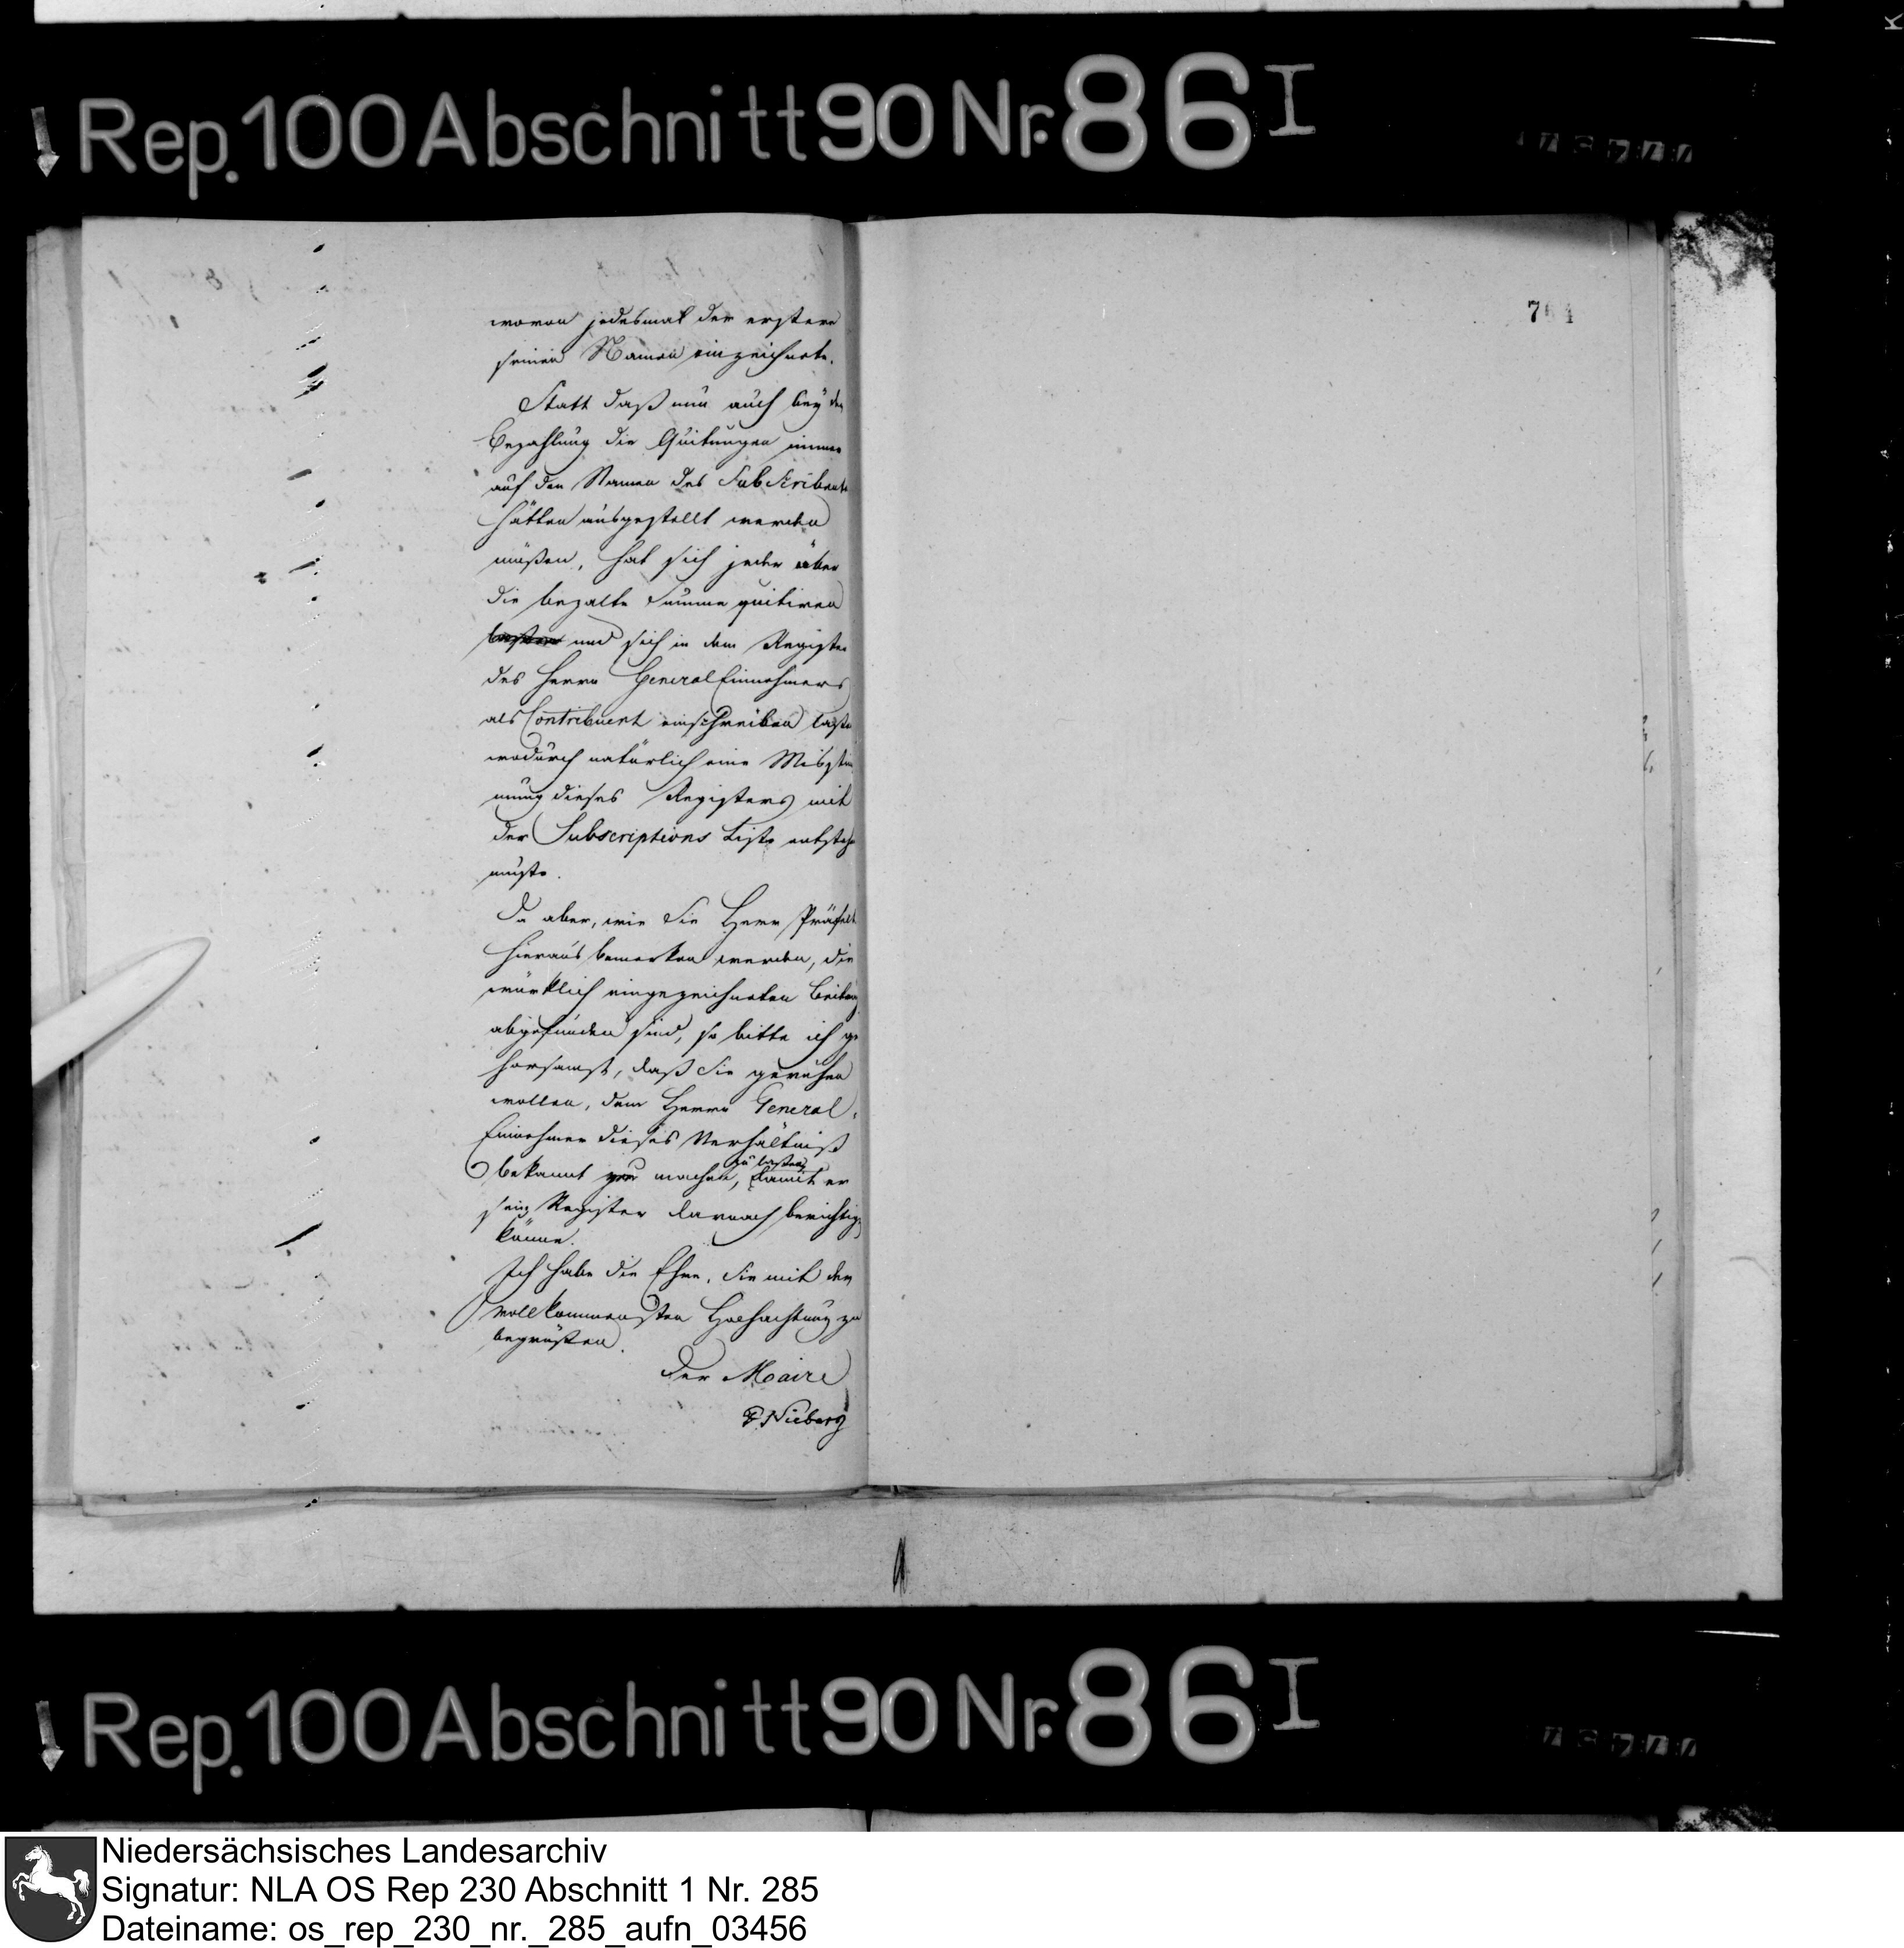 Rep. 100 Abschnitt 90 Nr. 86 I
764
wovon jedesmal der erstere
seinen Namen einzeichnete.
Statt daß nun auch bey der
Bezahlung die Quitungen immer
auf den Namen des Subscribente
hätten ausgestellt werden
müßen, hat sich jeder über
die bezalte Summe quitiren
und sich in dem Register
des Herrn General Einnehmers
als Contribuent einschreiben laße
wodurch natürlich eine Misstim
mung dieses Registers mit
der Subscriptions Liste entstehe
muste.
Da aber, wie Sie Herr Präfekt
hieraus bemerken werden, die
würklich eingezeichneten Beiträg
abgefunden sind, so bitte ich ge
horsamst, daß Sie geruhen
wollen, dem Herrn General-
Einnehmer dieses Verhältniß
zu laßen
bekannt machen, damit er
sein Register darnach berichtigen
könne.
Ich habe die Ehre, Sie mit der
vollkommensten Hochachtung zu
begrüßen.
Der Maire
Nieberg
Rep. 100 Abschnitt 90 Nr. 86 I
Niedersächsisches Landesarchiv
Signatur: NLA OS Rep 230 Abschnitt 1 Nr. 285
Dateiname: os_rep_230_nr._285_aufn_03456